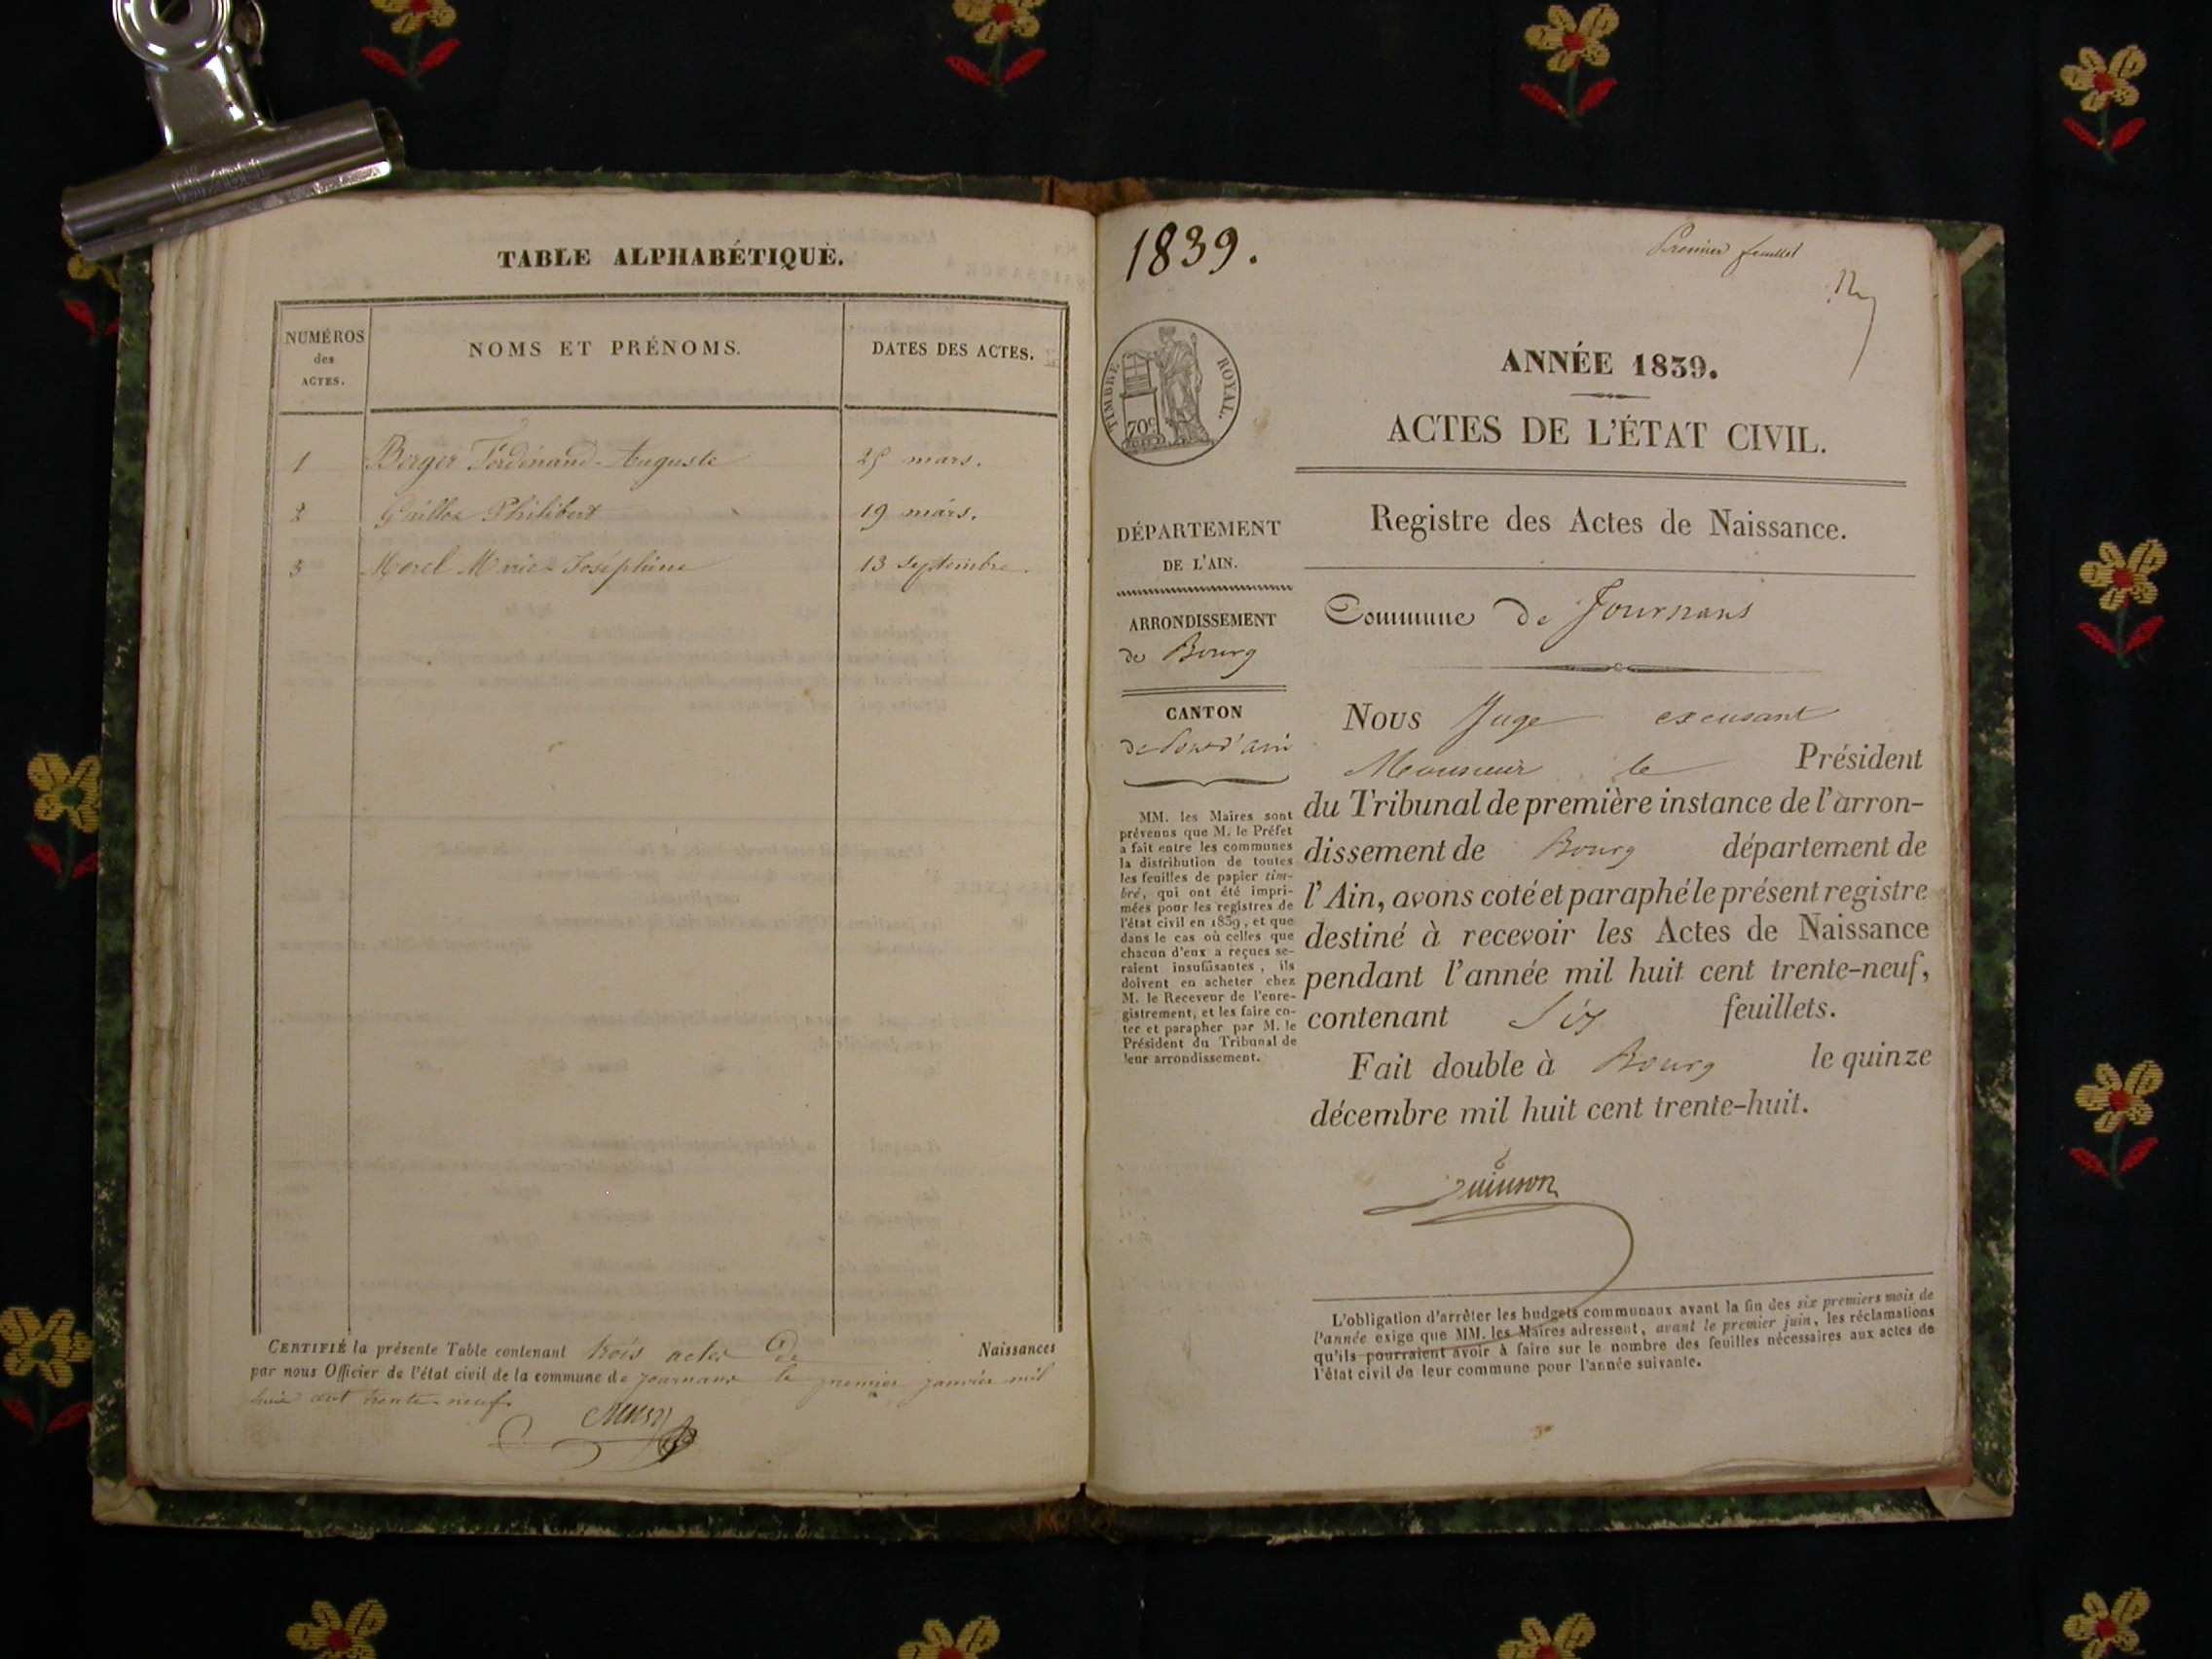 TABLE ALPHABÉTIQUE.
NUMÉROS
des
ACTES.
NOMS ET PRÉNOMS.
DATES DES ACTES.
1 Berger Ferdinand-Auguste 25 mars.
2 Philibert 19 mars.
3 Morel Marie-Joséphine 13 Septembre.
CERTIFIÉ la présente Table contenant trois actes de Naissances
par nous Officier de l'état civil de la commune de Journans le premier janvier mil
huit cent trente-neuf
1839.
Premier feuillet
TIMBRE ROYAL.
70c
ANNÉE 1839.
ACTES DE L'ÉTAT CIVIL.
Registre des Actes de Naissance.
Commune de Journans
DÉPARTEMENT
DE L'AIN.
ARRONDISSEMENT
de Bourg
CANTON
de Pont d'ain
MM. les Maires sont
prévenus que M. le Préfet
a fait entre les communes
la distribution de toutes
les feuilles de papier tim-
bré, qui ont été impri-
mées pour les registres de
l'état civil en 1839, et que
dans le cas où celles que
chacun d'eux a reçues se-
raient insuffisantes, ils
doivent en acheter chez
M. le Receveur de l'enre-
gistrement, et les faire co-
ter et parapher par M. le
Président du Tribunal de
leur arrondissement.
Nous Juge excusant
Monsieur le Président
du Tribunal de première instance de l'arron-
dissement de Bourg département de
l'Ain, avons coté et paraphé le présent registre
destiné à recevoir les Actes de Naissance
pendant l'année mil huit cent trente-neuf,
contenant Six feuillets.
Fait double à Bourg le quinze
décembre mil huit cent trente-huit.
L'obligation d'arrêter les budgets communaux avant la fin des six premiers mois de
l'année exige que MM. les Maires adressent, avant le premier juin, les réclamations
qu'ils pourraient avoir à faire sur le nombre des feuilles nécessaires aux actes de
l'état civil de leur commune pour l'année suivante.